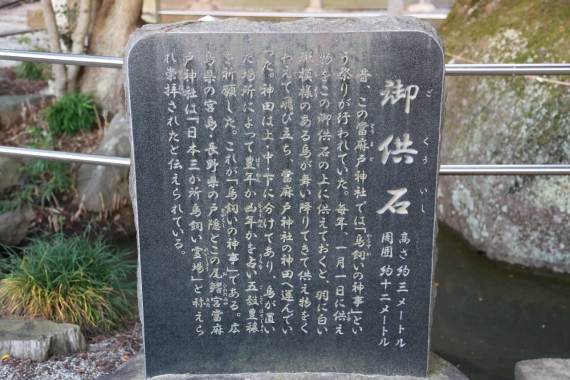 御供石
ご くう いし
高さ 約三メートル
周囲 約十二メートル
昔、この當麻戸神社では「鳥飼いの神事」とい
う祭りが行われていた。毎年、一月一日に供え
物をこの御供石の上に供えておくと、羽に白い
模様のある鳥が舞い降りてきて供え物をく
わえて飛び立ち、當麻戸神社の神田へ運んでい
った。神田は上・中・下に分けてあり、鳥が置い
た場所によって豊年か凶年かを占い五穀豊穣
を祈願した。これが「鳥飼いの神事」である。広
島県の宮島・長野県の戸隠とこの尾鰭宮當麻
戸神社は「日本三か所鳥飼い霊場」と称えら
れ崇拝されたと伝えられている。